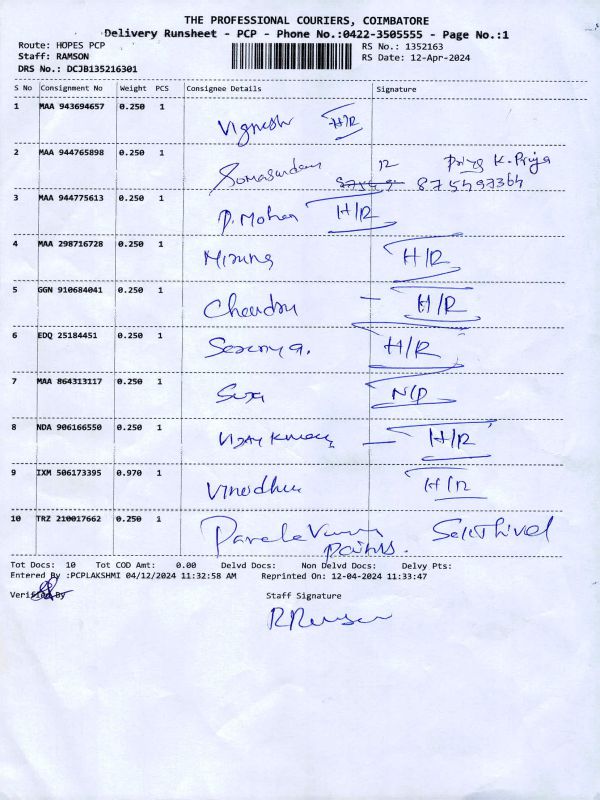 THE PROFESSIONAL COURIERS, COIMBATORE
Delivery Runsheet - PCP - Phone No.:0422-3505555 - Page No.:1
Route: HOPES PCP RS No.: 1352163
Staff: RAMSON RS Date: 12-Apr-2024
DRS No.: DCJB135216301
S No Consignment No Weight PCS Consignee Details Signature
1 MAA 943694657 0.250 1
Vignesh H/R
2 MAA 944765898 0.250 1 Priya K. Priya
Somasundam
875497364
3 MAA 944775613 0.250 1
P. Mohan H/R
4 MAA 298716728 0.250 1
H/R
5 GGN 910684041 0.250 1
Chandru - H/R
6 EDQ 25184451 0.250 1
H/R
7 MAA 864313117 0.250 1
N/D
8 NDA 906166550 0.250 1
Vijay Kumar - H/R
9 IXM 506173395 0.970 1
Vinodhini H/R
10 TRZ 210017662 0.250 1
Sakthivel
Points.
Tot Docs: 10 Tot COD Amt: 0.00 Delvd Docs: Non Delvd Docs: Delvy Pts:
Entered By :PCPLAKSHMI 04/12/2024 11:32:58 AM Reprinted On: 12-04-2024 11:33:47
Verified By Staff Signature